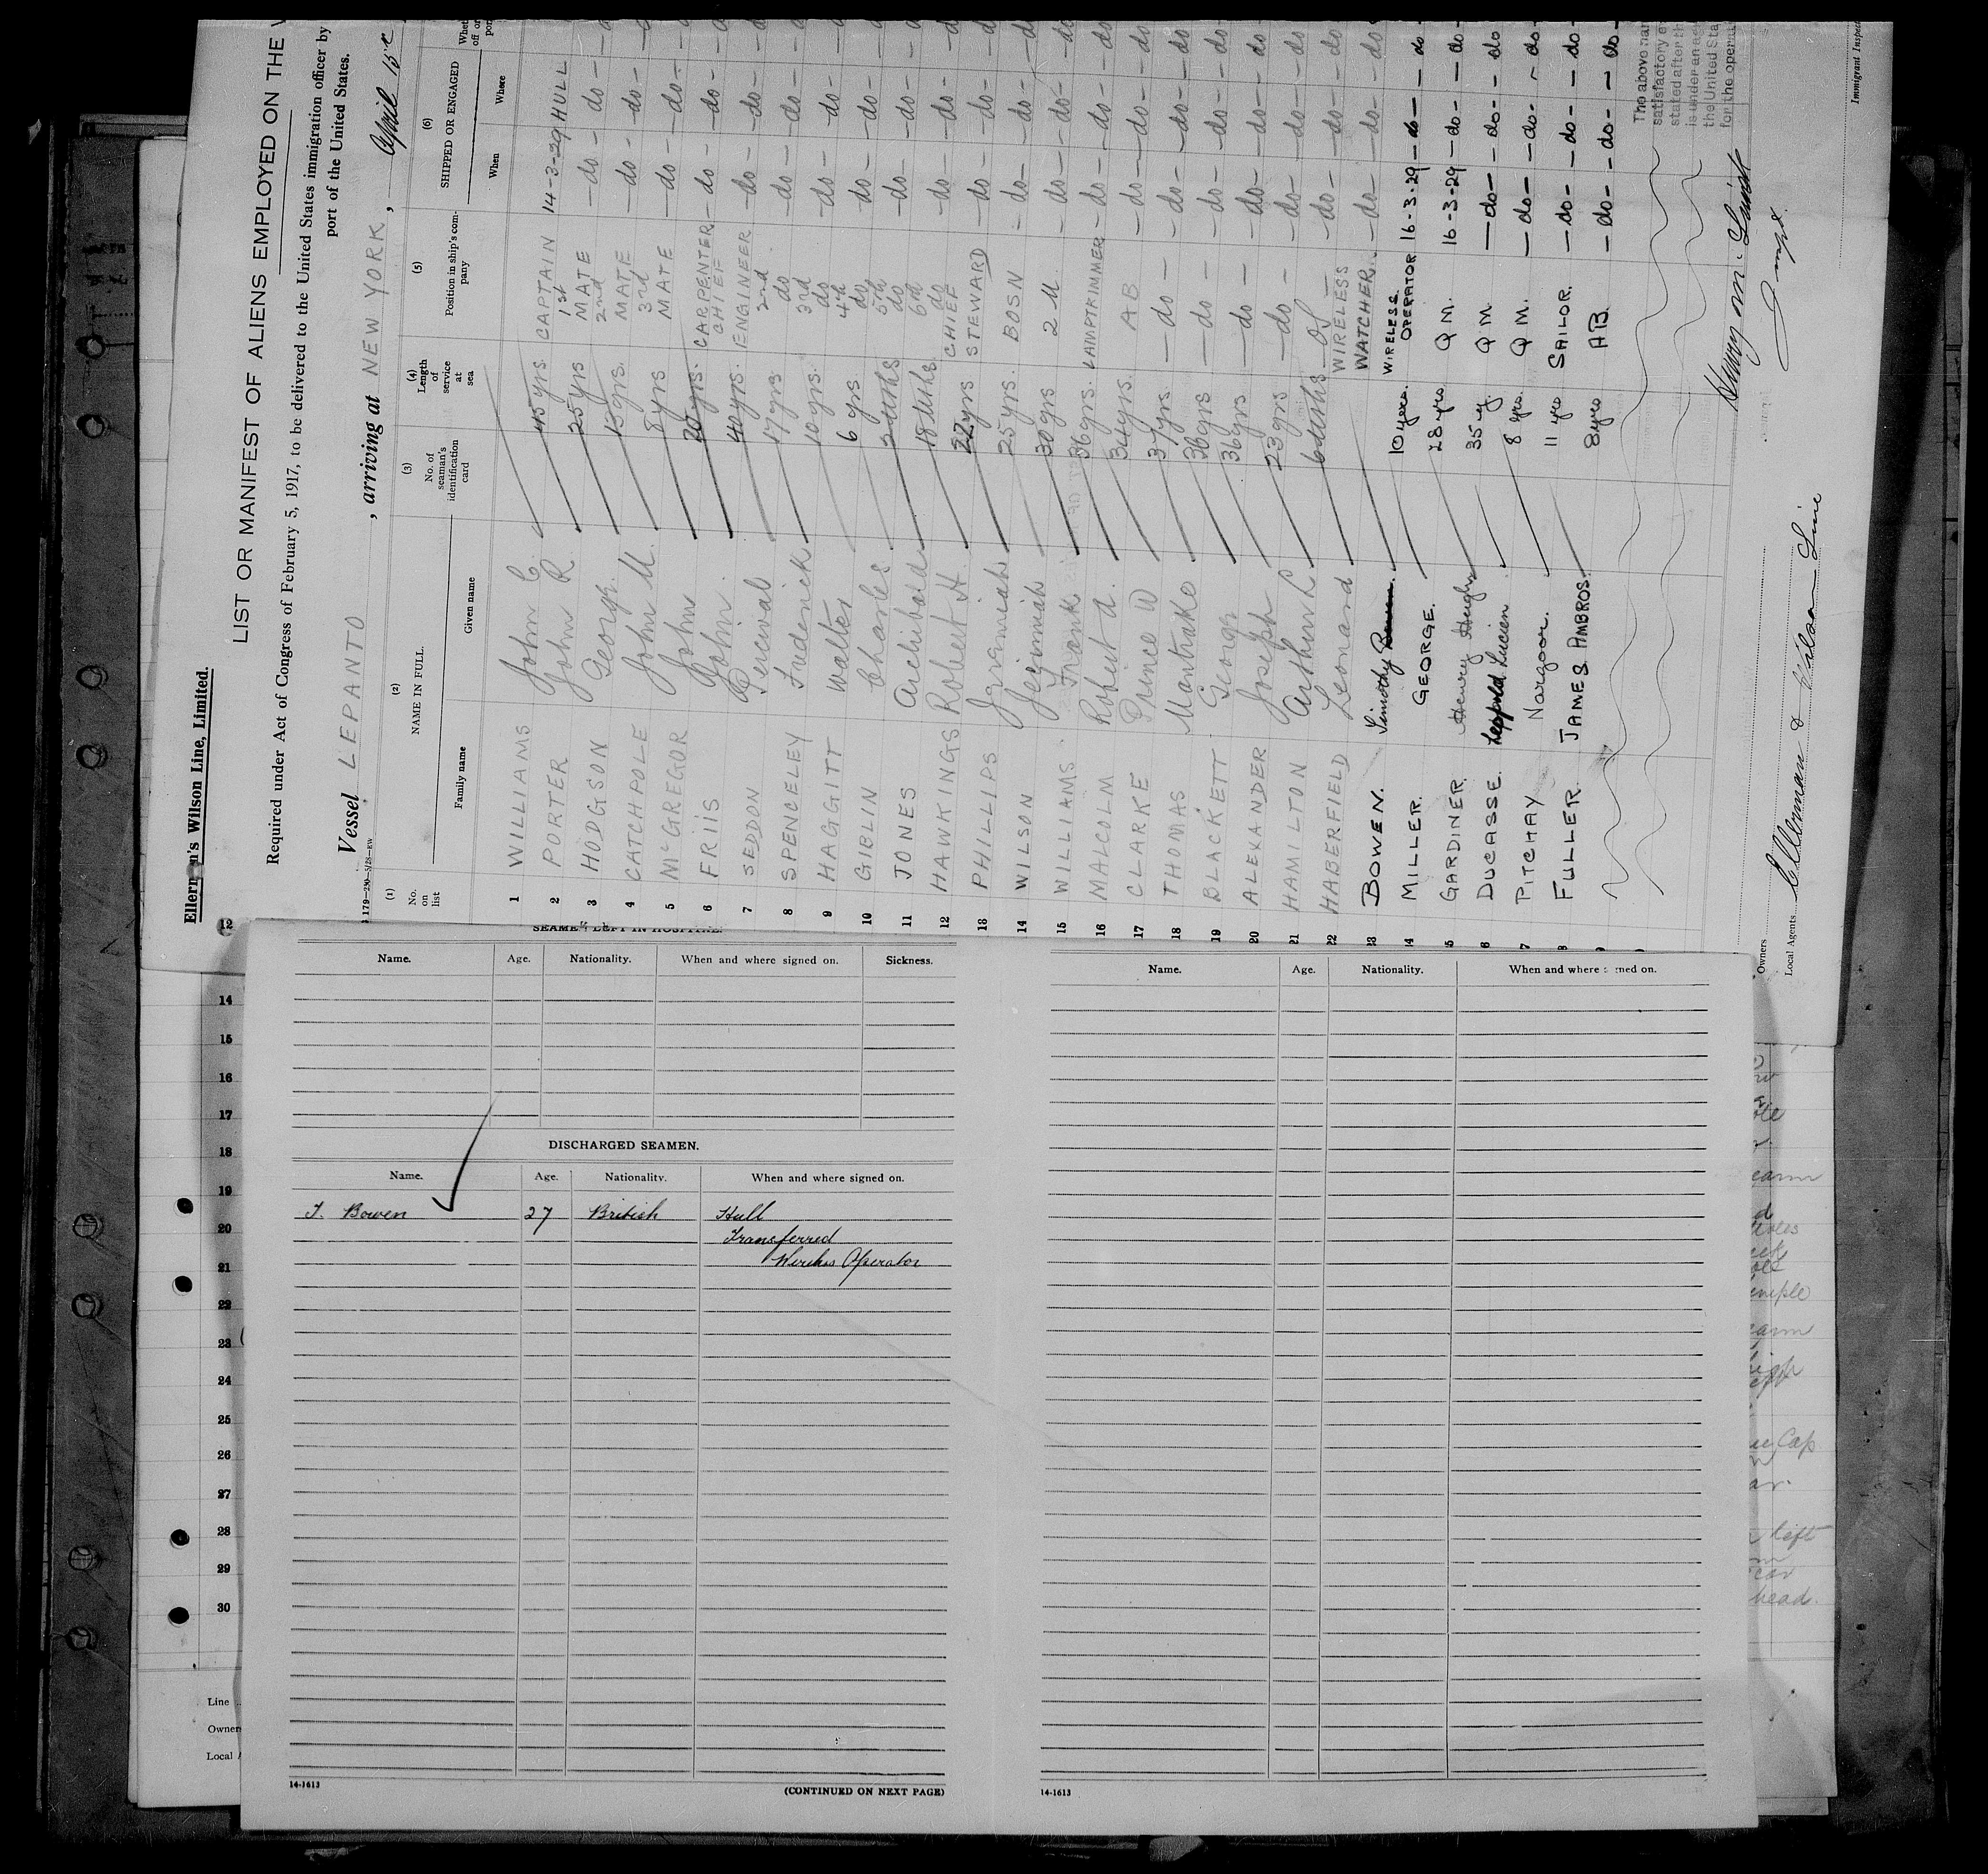 Ellerman's Wilson Line, Limited.
LIST OR MANIFEST OF ALIENS EMPLOYED ON THE
Required under Act of Congress of February 5, 1917, to be delivered to the United States immigration officer by
port of the United States.
Vessel LEPANTO , arriving at NEW YORK , April 15
(1) No. on list (2) NAME IN FULL. Family name Given name (3) No. of seaman's identification card (4) Length of service at sea (5) Position in ship's company (6) SHIPPED OR ENGAGED When Where
1 WILLIAMS John C. 45 yrs CAPTAIN 14-3-29 HULL
2 PORTER John R. 25 yrs 1st MATE -do- -do-
3 HODGSON George 13 yrs. 2nd MATE -do- -do-
4 CATCHPOLE John M. 8 yrs 3rd MATE -do- -do-
5 McGREGOR John 20 yrs. CARPENTER -do- -do-
6 FRIIS John 40 yrs. CHIEF ENGINEER -do- -do-
7 SEDDON Percival 17 yrs 2nd do -do- -do-
8 SPENCELEY Frederick 10 yrs. 3rd do -do- -do-
9 HAGGITT Walter 6 yrs 4th do -do- -do-
10 GIBLIN Charles 5th do -do- -do-
11 JONES Archibald 18 6 do -do- -do-
12 HAWKINGS Robert H. 22 yrs CHIEF STEWARD -do- -do-
13 PHILLIPS Jeremiah 25 yrs. BOSN -do- -do-
14 WILSON Jeremiah 30 yrs 2 M. -do- -do-
15 WILLIAMS. Frank 36 yrs. LAMPTRIMMER -do- -do-
16 MALCOLM Robert A. 34 yrs. AB -do- -do-
17 CLARKE Prince W 37 yrs. -do- -do- -do-
18 THOMAS 36 yrs -do- -do- -do-
19 BLACKETT George 36 yrs -do- -do- -do-
20 ALEXANDER Joseph 23 yrs -do- -do- -do-
21 HAMILTON Arthur L 6 OS -do- -do-
22 HABERFIELD Leonard WIRELESS WATCHER. -do- -do-
23 BOWEN. Timothy 10 years. WIRELESS OPERATOR 16-3-29 -do-
4 MILLER. GEORGE. 28 yrs Q M. 16-3-29 -do-
5 GARDINER. Henry Hugh 35 y. Q M. -do- -do-
6 DUCASSE. Leopold Lucien 8 yrs. Q M. -do- -do-
7 PITCHAY Nargoor. 11 yrs SAILOR. -do- -do-
8 FULLER. JAMES AMBROS. 8 yrs AB. -do- -do-
The above nam
satisfactory e
stated after th
is under an a
the United Sta
for the operat
Immigrant Inspec
Owners
Local Agents Ellerman & Wilson Line
SEAMEN LEFT IN HOSPITAL
Name. Age. Nationality. When and where signed on. Sickness.
DISCHARGED SEAMEN.
Name. Age. Nationality. When and where signed on.
T. Bowen 27 British Hull
Transferred
Wireless Operator
14-1613 (CONTINUED ON NEXT PAGE)
Name. Age. Nationality. When and where signed on.
14-1613
12
14
15
16
17
18
19
20
21
22
23
24
25
26
27
28
29
30
Line
Owner
Local
left
head.